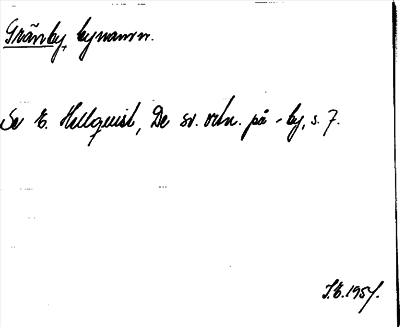 Gränby, bynamn.
Se E. Hellquist, De sv. ortn. på -by, s. 7.
I.E. 1957.